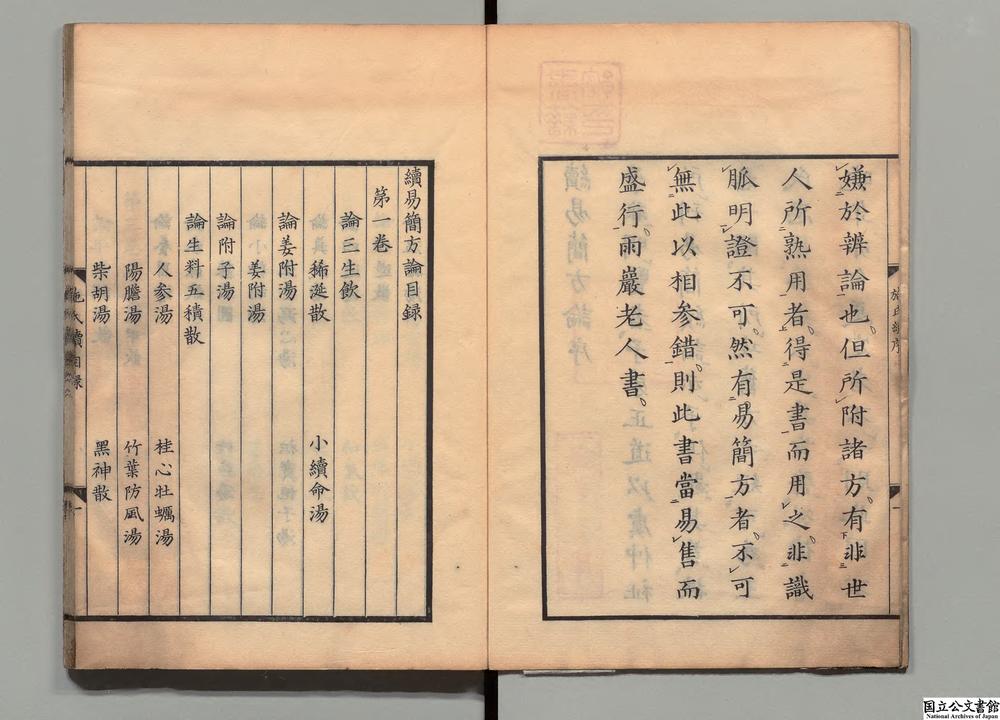 嫌於辨論也但所附諸方有非世
人所熟用者得是書而用之非識
脈明證不可然有易簡方者不可
無此以相参錯則此書當易售而
盛行雨巖老人書
續易簡方論目録
第一卷
論三生飲
稀涎散 小續命湯
論姜附湯
姜附湯
論附子湯
論生料五積散
人参湯 桂心牡蠣湯
陽膽湯 竹葉防風湯
柴胡湯 黑神散
一
一
国立公文書館
National Archives of Japan